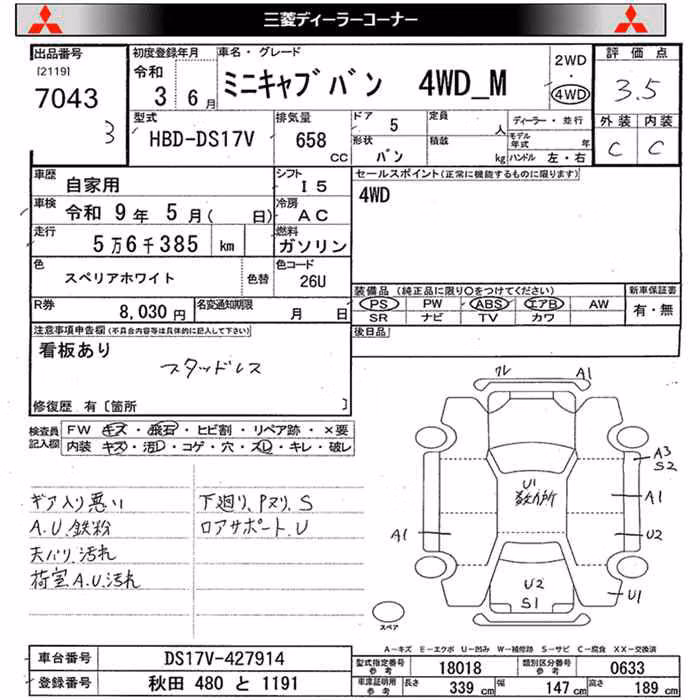 三菱ディーラーコーナー
出品番号
[2119]
7043
3
初度登録年月
令和
3年 6月
車名・グレード
ミニキャブバン 4WD_M
2WD
・
4WD
評価点
3.5
外装 内装
C C
型式
HBD-DS17V
排気量
658
CC
ドア
5
形状
バン
定員
人
積載
kg
ディーラー・並行
モデル年式 年
ハンドル 左・右
車歴
自家用
シフト
I5
車検
令和 9年 5月( 日)
冷房
AC
走行
5万6千385 km
燃料
ガソリン
色
スペリアホワイト
色替
色コード
26U
R券
8,030円
名変通知期限
月 日
セールスポイント(正常に機能するものに限ります)
4WD
装備品(純正品に限り○をつけてください)
PS PW ABS エアB AW
SR ナビ TV カワ
新車保証書
有・無
後日品
注意事項申告欄(不具合内容等は具体的に記入して下さい)
看板あり
スタッドレス
修復歴 有〔箇所 〕
検査員記入欄
FW キズ・飛石・ヒビ割・リペア跡・×要
内装 キズ・汚レ・コゲ・穴・スレ・キレ・破レ
ギア入り悪い
A.U.鉄粉
天バリ、汚れ
荷室A.U.汚れ
下廻り、Pヌリ、S
ロアサポート、U
クレ
A1
A3
S2
U1
数ヶ所
A1
A1
U2
U2
S1
U1
スペア
A－キズ E－エクボ U－凹み W－補修跡 S－サビ C－腐食 XX－交換済
車台番号
DS17V-427914
登録番号
秋田 480 と 1191
型式指定番号
参考
18018
類別区分番号
参考
0633
車庫証明用
参考
長さ 339 cm 幅 147 cm 高さ 189 cm